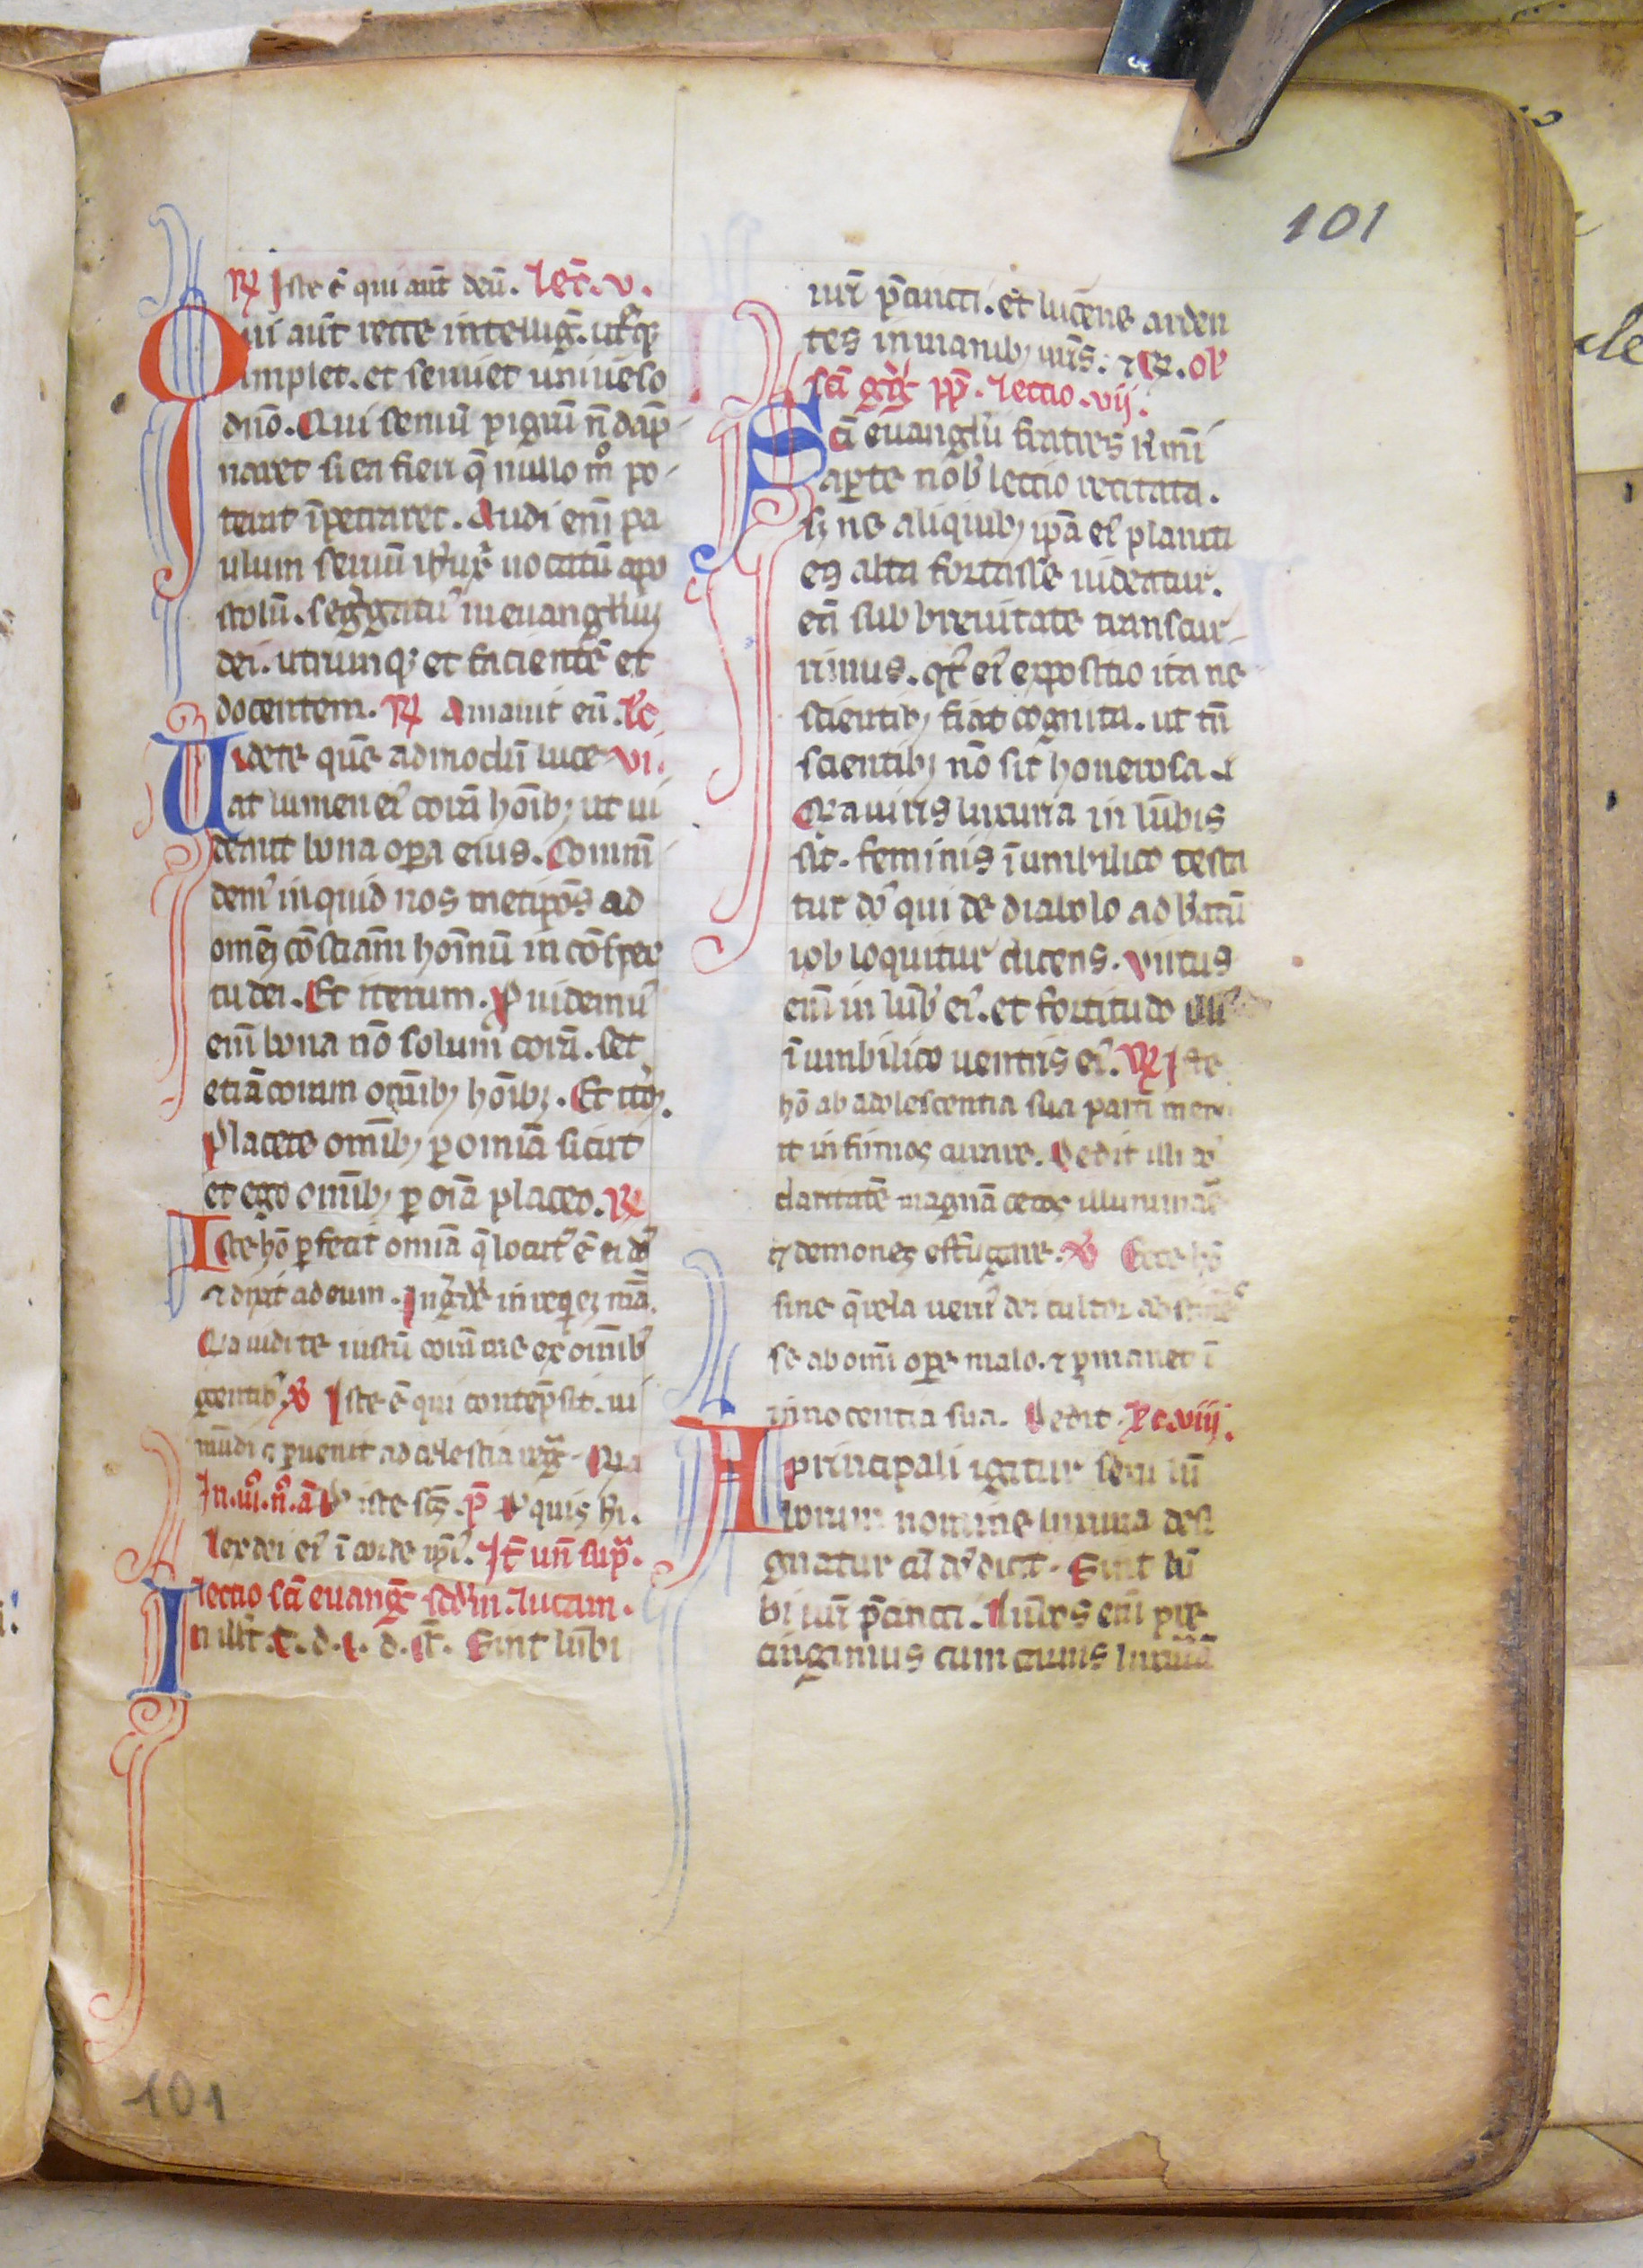 101
R Iste ē qui aūt deū. lec̄. v.
Qui aūt recte intelliḡ. utrūq;
implet. et seruiet uniuerso
dn̄o. Qui seruū pigrū n̄ dāp-
naret si ea fieri q̄ nullo mº po-
terat īpetraret. Audi eni pa
ulum seruū
uocatū apo
stolū. segregatū in euangliū
dei. utrumq; et facientē et
docentem. R Amauit eū. lc̄
Uidete quēadmodū luce vi.
at lumen ei' corā hōib; ut ui
deant bona opera eius. Comm̄
dem' inquid nos metip̄os ad
omnē cōsciam hoīnū in cōspec
tu dei. Et iterum. Prouidemu'
enī bona nō solum corā. set
etiā coram omīb; hōib;. Et
Placete omīb; p omīa sicut
et ego omīb; p oīa placeo. R
Iste hō pfecit omīa q̄ locut' ē ei d's
& dixit ad eum. Ingrede in requiē meā.
Qia uidi te iustū corā me ex omīb'
gentib'. V Iste ē qui contēpsit. ui
mūdi & puenit ad celestia reḡ. Quia
iste sc̄s. p̄ V quis hi.
Lex dei ei' ī corde ip̄i'. It un̄ sup̄.
lectio sc̄i euanḡ scd'm. lucam.
In ill'. t. d. i. d. Sint lūbi
uri p̄cincti. et lucerne arden
tes in manib; uris. & R. ol'
sc̄i gg' pp̄. lectio. vij.
Sc̄i euanglii fratres k̄mi
aperte nob' lectio recitata.
s; ne aliquib; ip̄a ei' planiti
es alta fortasse uideatur.
eā sub breuitate transcur-
rimus. qt' ei' expositio ita ne
scientib; fiat cognita. ut tn̄
scientib; nō sit honerosa.
Qia uiris luxuria in lūbis
sit. feminis ī umbilico testa
tur dn̄s qui de diabolo ad beatū
iob loquitur dicens. Virtus
enī in lūb' ei'. et fortitudo illi'
ī umbilico uentris ei'. R Iste
hō ab adolescentia sua patri meru
it infirmos curare. Dedit illi d's
claritatē magnā cecos illuminare
& demones effugare. V Ecce hō
sine q̄rela uer' dei cultor abstinēs
se ab omī opere malo. & pmanet ī
innocentia sua. Dedit. lc. viij.
A principali igitur sexu lū
borum nomine luxuria desi
gnatur cū dn̄s dicit. Sint lū
bi uri p̄cincti. Lūbos enī pre
cingimus cum carnis luxuriā
101